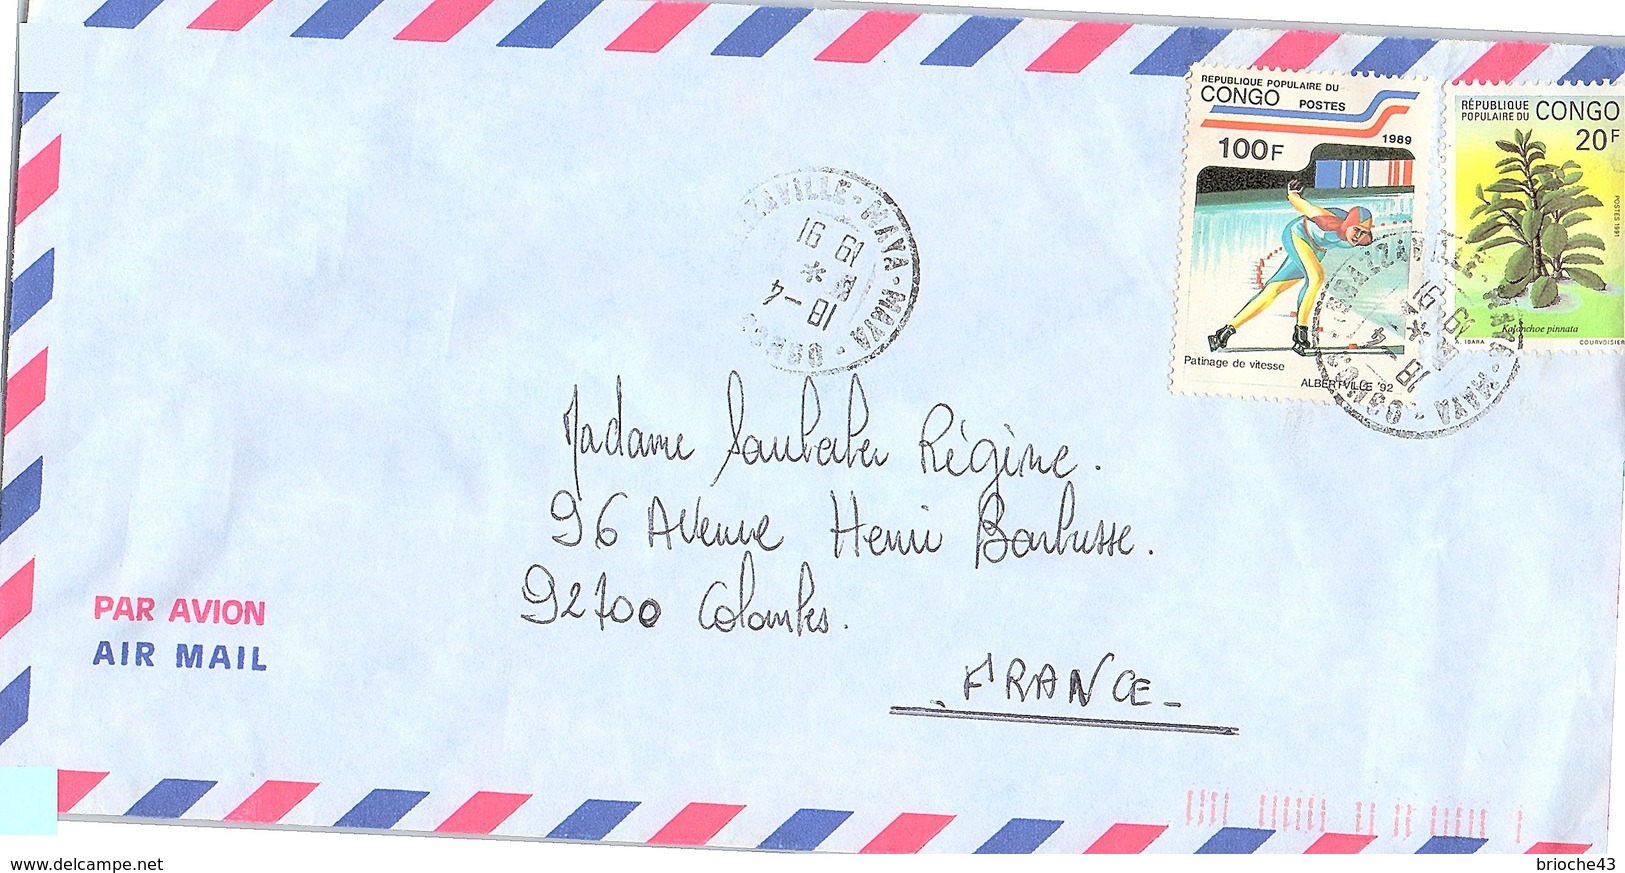 REPUBLIQUE POPULAIRE DU
CONGO POSTES
1989
100F
Patinage de vitesse
ALBERTVILLE '92
RÉPUBLIQUE
POPULAIRE DU CONGO
20F
POSTES 1991
Kalanchoe pinnata
A. IBARA COURVOISIER
ZAVILLE - MAYA - MAYA - CONGO
18 - 4
*
19 91
BRAZZAVILLE - MAYA - MAYA - CONGO
18 - 4
*
19 91
Madame Régine.
96 Avenue Henri Barbusse.
92700 Colombes.
FRANCE
PAR AVION
AIR MAIL
delcampe.net
brioche43